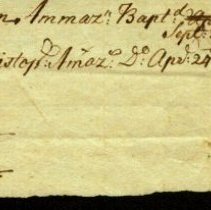 n Ammaz: Bapt:d
Sept:
istop: Amaz: D:o Apr: 24